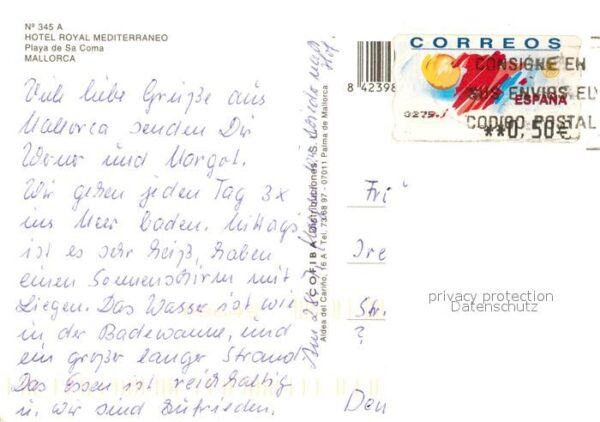 Nº 345 A
HOTEL ROYAL MEDITERRANEO
Playa de Sa Coma
MALLORCA
Viele liebe Grüße aus
Mallorca senden Dir
Werner und Margot.
Wir gehen jeden Tag 3x
ins Meer baden. Mittags
ist es sehr heiß, haben
einen Sonnenschirm mit
Liegen. Das Wasser ist wie
in der Badewanne, und
ein großer langer Strand
Das Essen ist reichhaltig
u. wir sind zufrieden.
Am 28.
COFIBA Distribuciones, S.
Aldea del Cariño, 16 A - Tel. 73 68 97 - 07011 Palma de Mallorca
8 42398
CORREOS
ESPAÑA
0279
**0,50€
CONSIGNE EN
SUS ENVIOS EL
CODIGO POSTAL
Fri
Ire
Str.
?
Den
privacy protection
Datenschutz